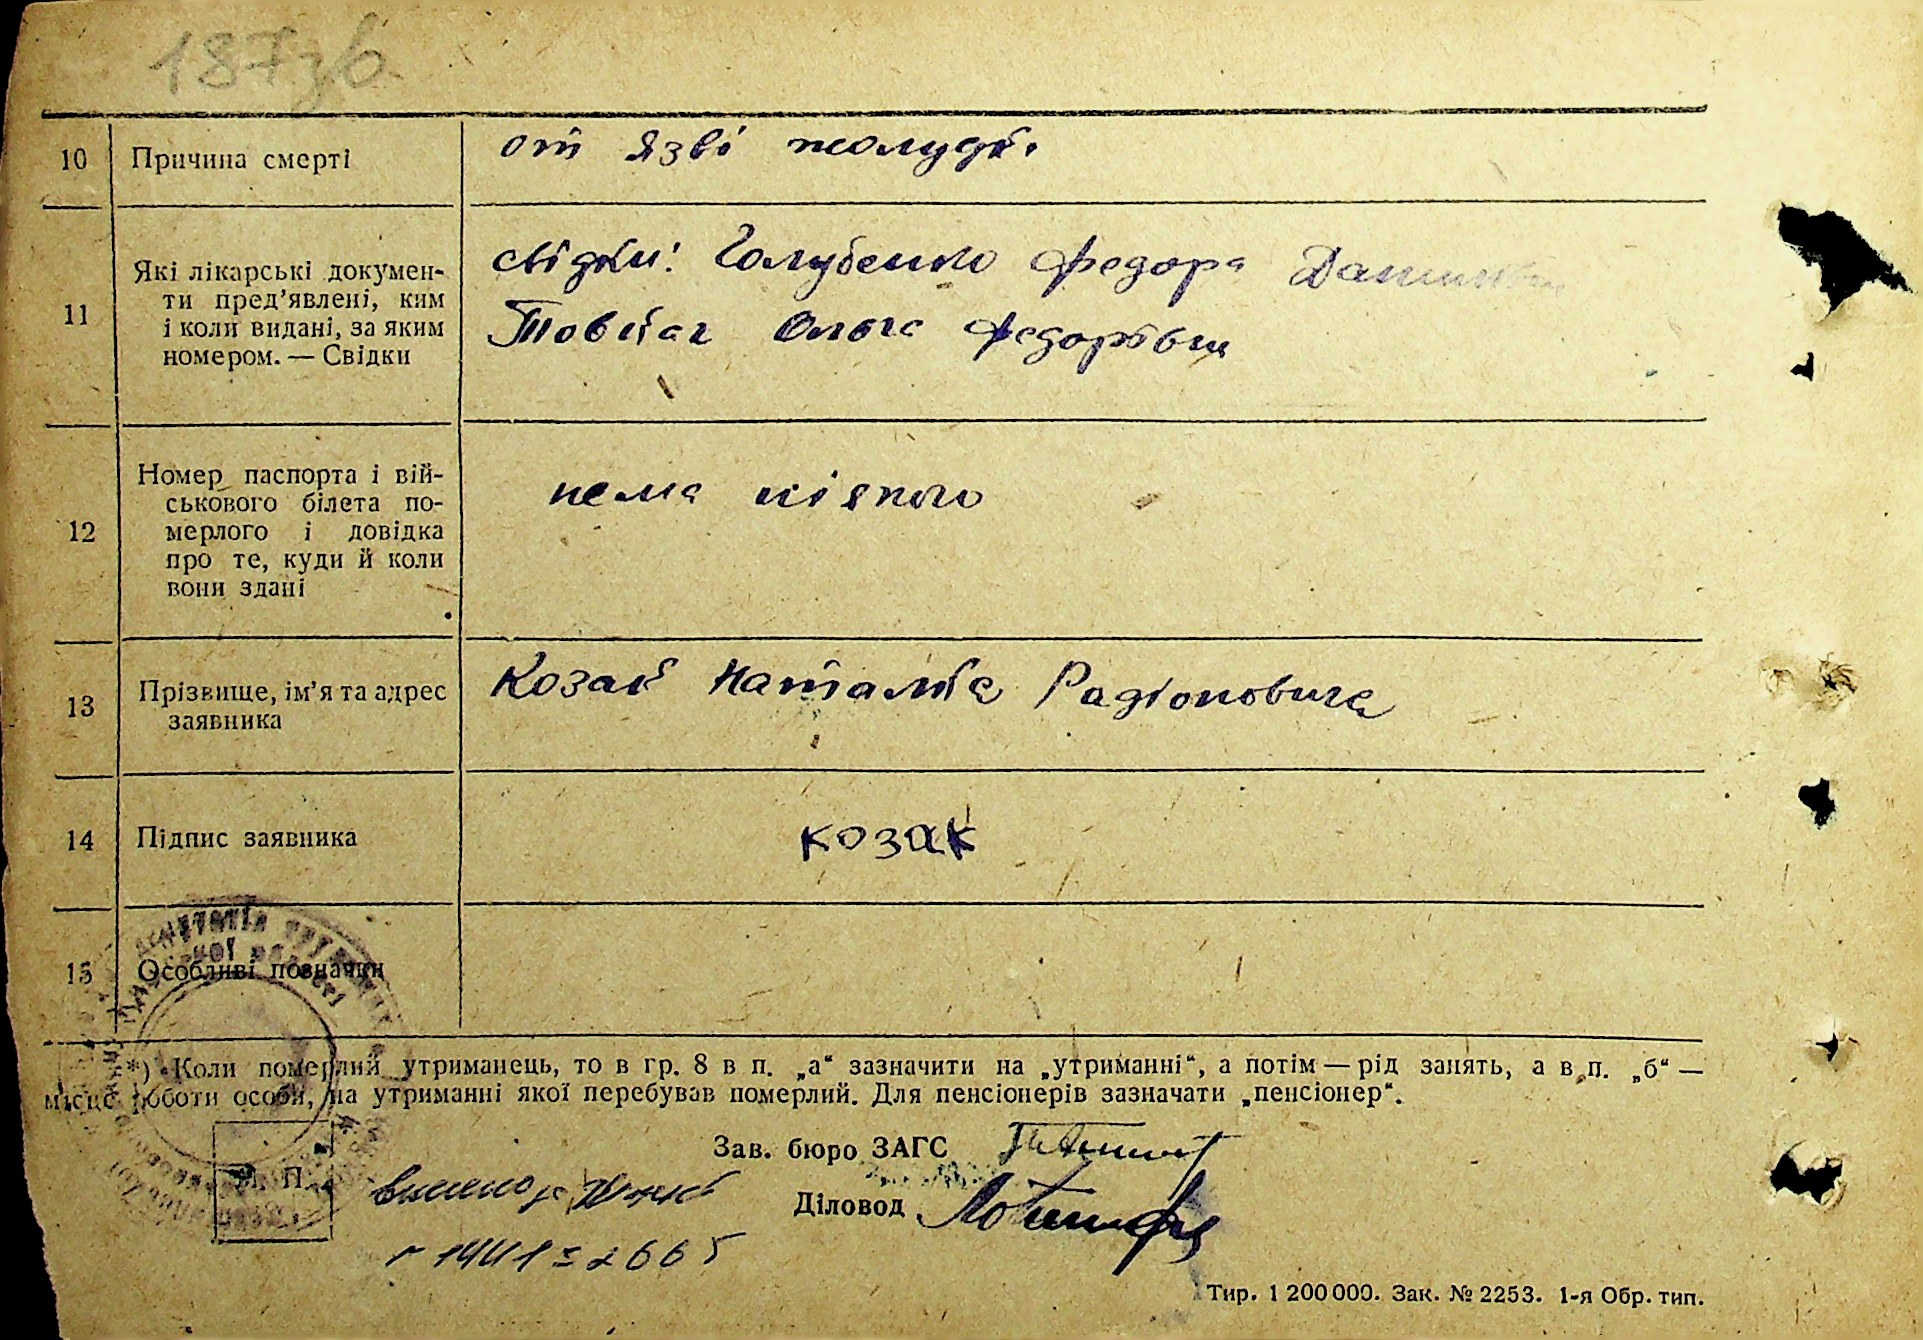 187зв
10 Причина смерті от язві жолудк.
11 Які лікарські докумен-
ти пред’явлені, ким
і коли видані, за яким
номером. — Свідки
свідки: Голубенко Федора
Ольга Федорівна
12 Номер паспорта і вій-
ськового білета по-
мерлого і довідка
про те, куди й коли
вони здані
нема ніякого
13 Прізвище, ім’я та адрес
заявника
Козак Наталіа Радіоновича
14 Підпис заявника козак
15 Особливі позначки
*) Коли померлий утриманець, то в гр. 8 в п. „а“ зазначити на „утриманні“, а потім — рід занять, а в п. „б“ —
місце роботи особи, на утриманні якої перебував померлий. Для пенсіонерів зазначати „пенсіонер“.
Зав. бюро ЗАГС
М. П.
Діловод
Тир. 1 200 000. Зак. № 2253. 1-я Обр. тип.